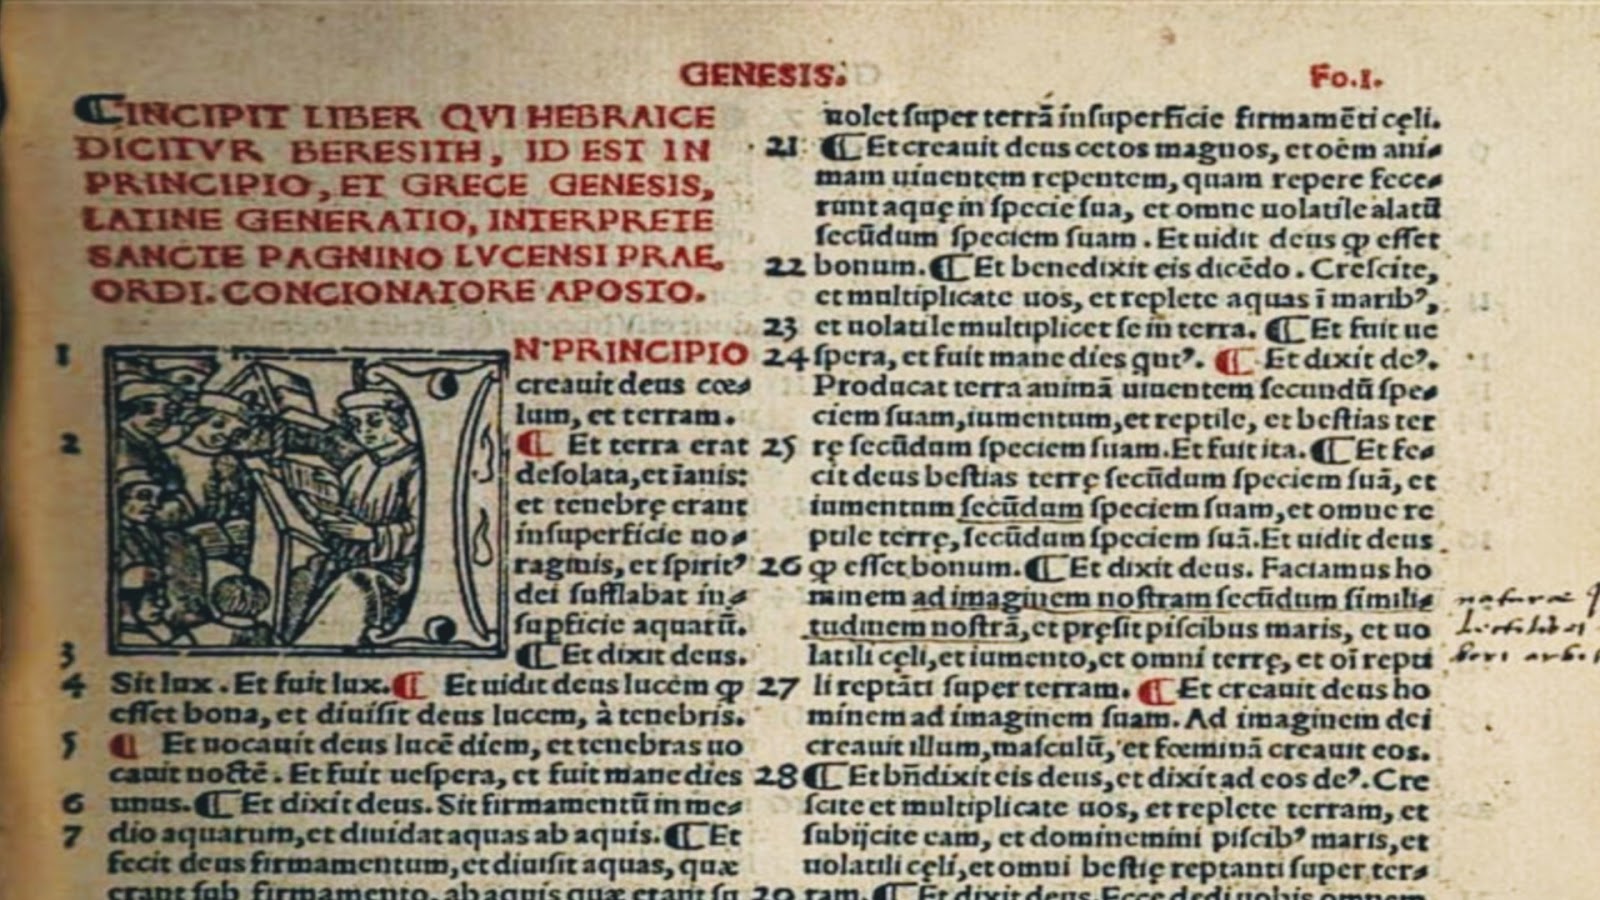 GENESIS.
Fo.I.
INCIPIT LIBER QVI HEBRAICE
DICITVR BERESITH, ID EST IN
PRINCIPIO, ET GRECE GENESIS,
LATINE GENERATIO, INTERPRETE
SANCTE PAGNINO LVCENSI PRAE
ORDI. CONCIONATORE APOSTO.
1 N PRINCIPIO
creauit deus cœ⸗
lum, et terram.
2 ¶ Et terra erat
desolata, et īanis:
et tenebrę erant
insuperficie uo⸗
raginis, et spiritꝰ
dei sufflabat in⸗
supficie aquarū.
3 ¶ Et dixit deus.
4 Sit lux. Et fuit lux. ¶ Et uidit deus lucem ꝙ
esset bona, et diuisit deus lucem, à tenebris.
5 ¶ Et uocauit deus lucē diem, et tenebras uo
cauit noctē. Et fuit uespera, et fuit mane dies
6 unus. ¶ Et dixit deus. Sit firmamentū in me⸗
7 dio aquarum, et diuidat aquas ab aquis. ¶ Et
fecit deus firmamentum, et diuisit aquas, quæ
erant sub firmamento, ab aquis quæ erant su
uolet super terrā insuperficie firmamēti cęli.
21 ¶ Et creauit deus cetos magnos, et oēm ani⸗
mam uiuentem repentem, quam repere fece⸗
runt aquę in specie sua, et omne uolatile alatū
secūdum speciem suam. Et uidit deus ꝙ esset
22 bonum. ¶ Et benedixit eis dicēdo. Crescite,
et multiplicate uos, et replete aquas ī maribꝰ,
23 et uolatile multiplicet se in terra. ¶ Et fuit ue
24 spera, et fuit mane dies qntꝰ. ¶ Et dixit deꝰ.
Producat terra animā uiuentem secundū spe⸗
ciem suam, iumentum, et reptile, et bestias ter
25 rę secūdum speciem suam. Et fuit ita. ¶ Et fe⸗
cit deus bestias terrę secūdum speciem suā, et
iumentum secūdum speciem suam, et omne re
ptile terrę, secūdum speciem suā. Et uidit deus
26 ꝙ esset bonum. ¶ Et dixit deus. Faciamus ho
minem ad imaginem nostram secūdum simili⸗
tudinem nostrā, et pręsit piscibus maris, et uo
latili cęli, et iumento, et omni terrę, et oī repti
27 li reptāti super terram. ¶ Et creauit deus ho
minem ad imaginem suam. Ad imaginem dei
creauit illum, masculū, et fœminā creauit eos.
28 ¶ Et bñdixit eis deus, et dixit ad eos deꝰ. Cre
scite et multiplicate uos, et replete terram, et
subijcite eam, et dominemini piscibꝰ maris, et
uolatili cęli, et omni bestię reptanti super ter⸗
29 ram. ¶ Et dixit deus. Ecce dedi uobis omnem